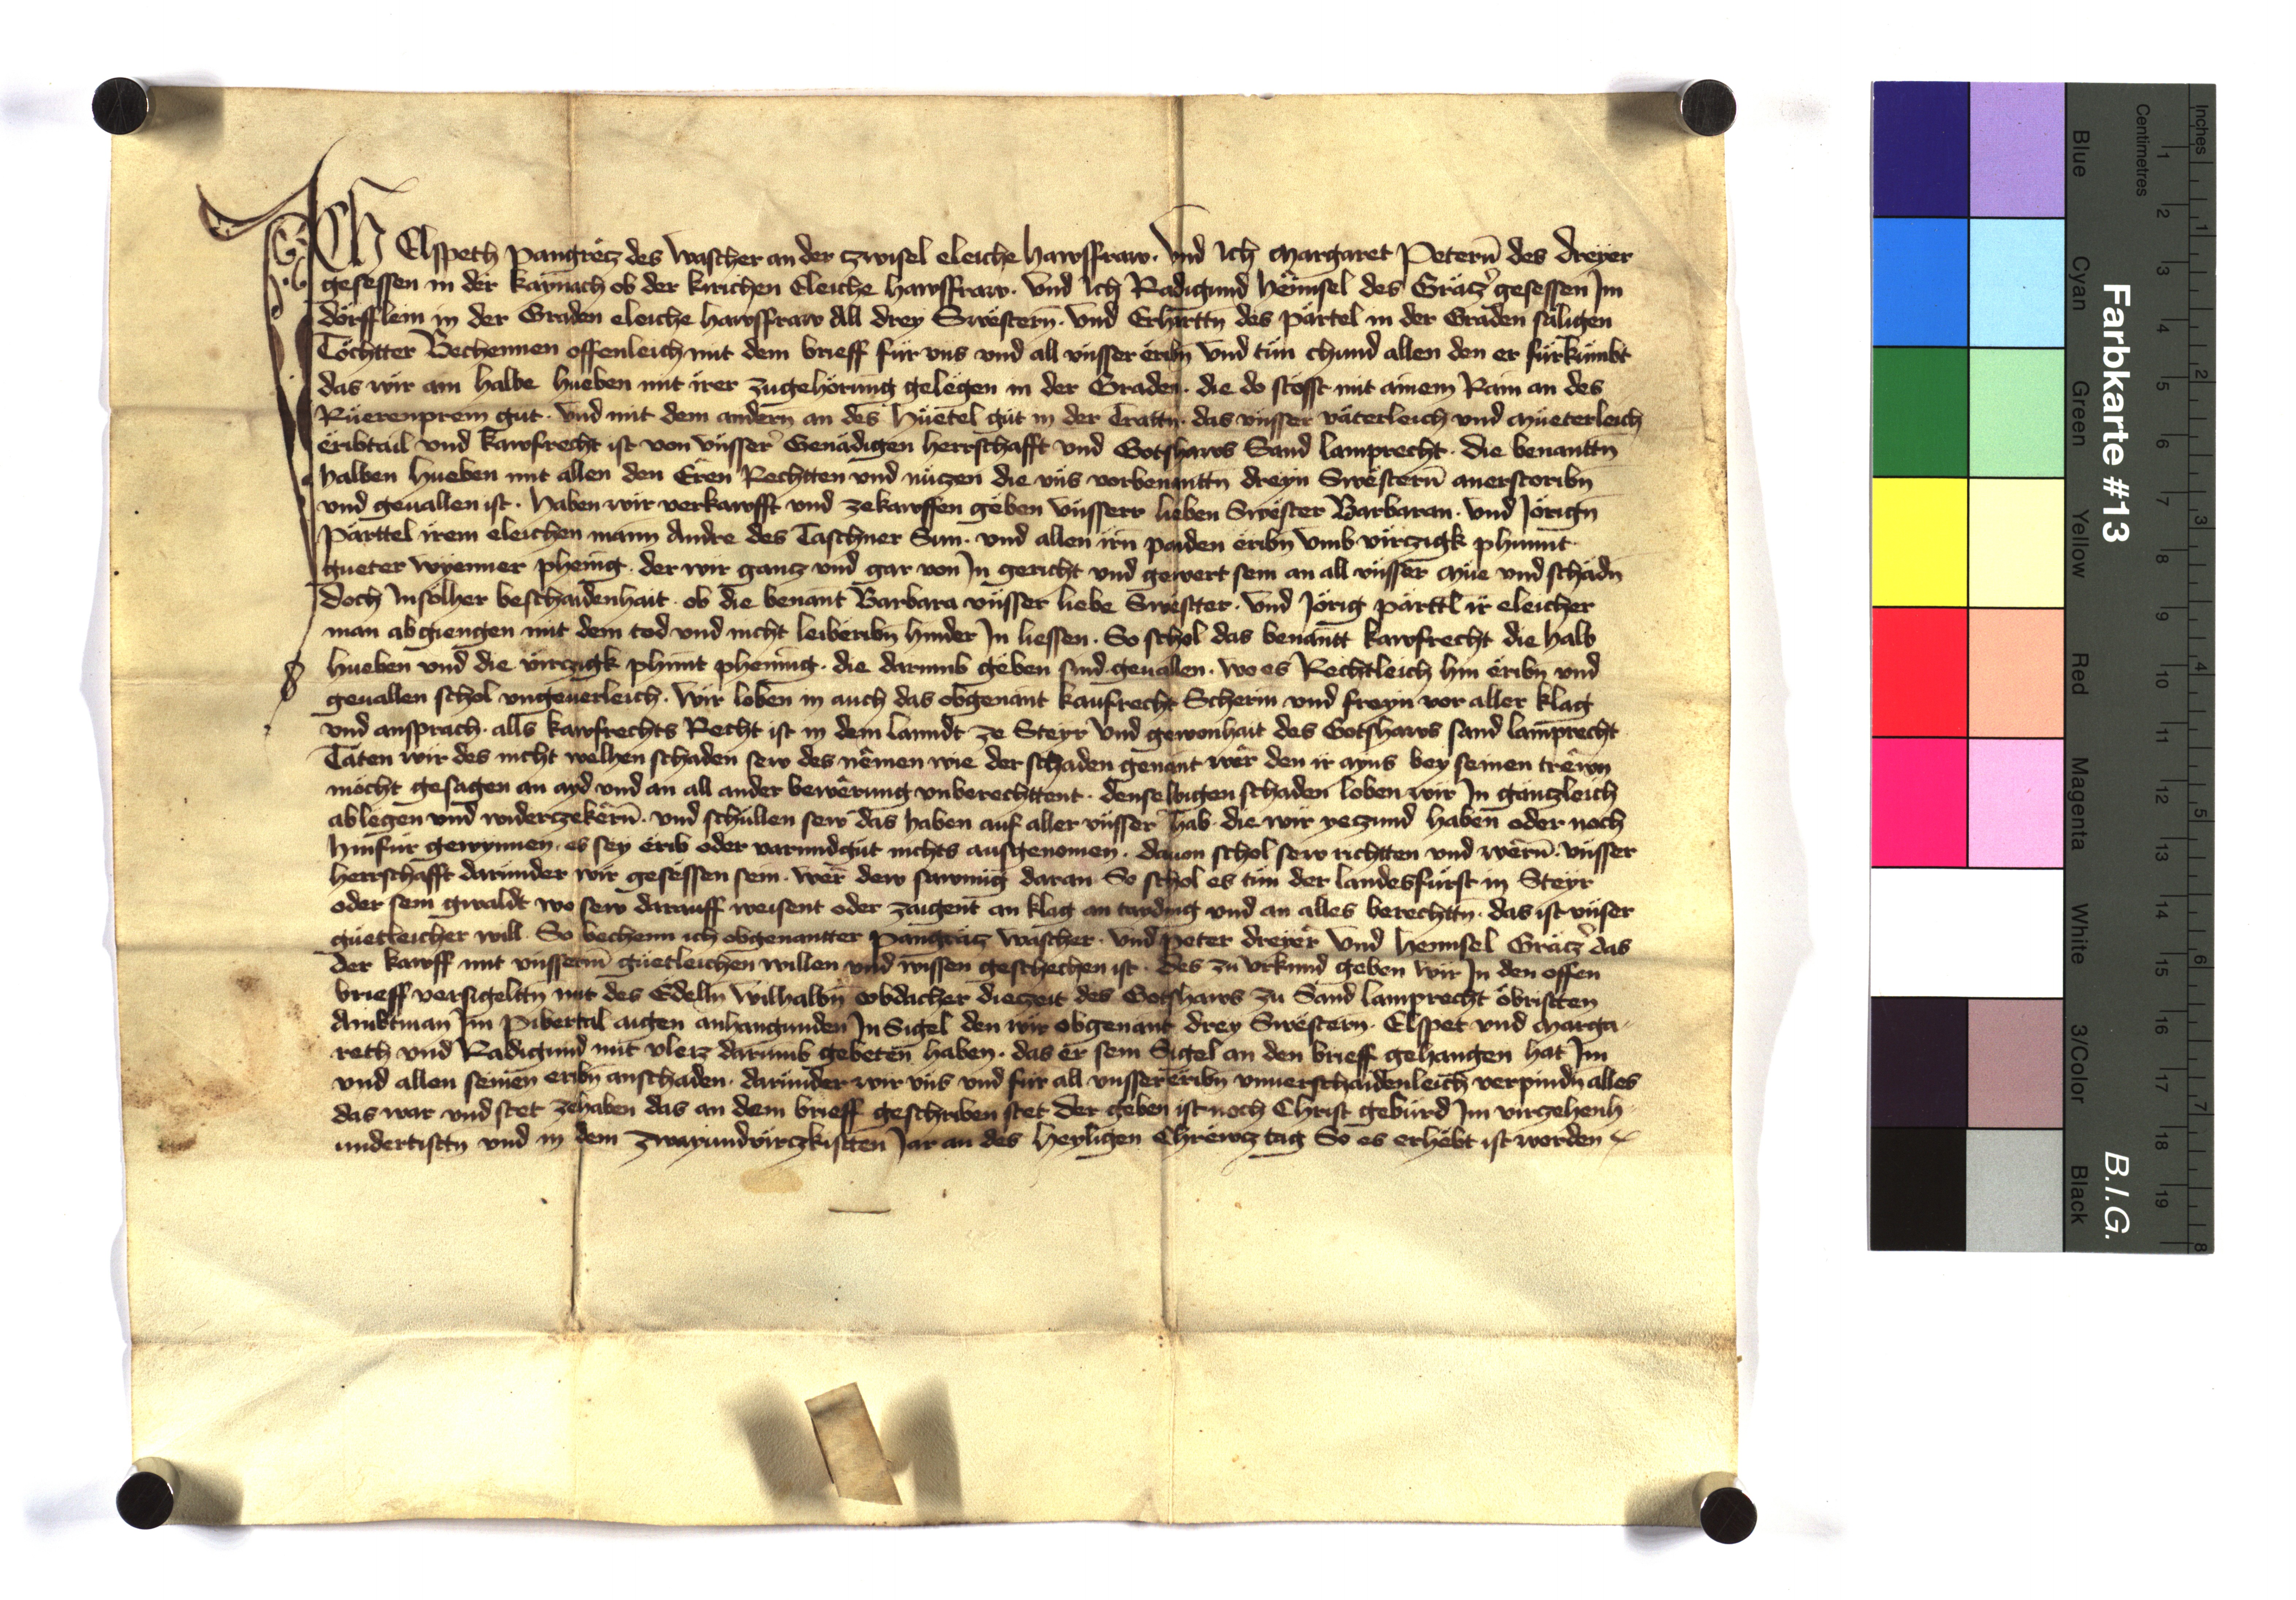 Ich Elspeth Pangrëcz des Wascher an der zwisel eleiche hawsfraw. Vnd Ich Margaret Peterñ des dreyer
gesessen in der kaynach ob der kirichen Eleiche hawsfraw. Vnd Ich Radigund hënnsel des Gräczer gesessen Im
dörfflein in der Graden eleiche hawsfraw All drey Swësterñ. Vnd Erharttñ des Pärtel in der Graden säligen
Töchtter Bechennen offenleich mit dem brieff für vns vnd all vnsser ëribñ Vnd tün chund allen den er fürkümbt
das wir ain halbe hueben mit irer zugehörung gelëgen in der Graden. die do stösst mit ainem Rain an des
Rüerenprem gut. Vnd mit dem andern an des hüetel güt in der Trattñ. das vnsser väterleich vnd müeterleich
ëribtail vnd kawfrecht ist von vnsser Genädigen herrschafft vnd Gotshaws Sand lamprecht. die benanttñ
halben hueben mit allen den Eren Rechtten vnd nüczen die vns vorbenanttñ dreyn Swësterñ anerstoribñ
vnd geuallen ist. haben wir verkawfft vnd zekawffen gëben vnsserr lieben Swëster Barbaran. vnd Jörigñ
Pärttel irem eleichen mann Andre des Taschner Sun. vnd allen irñ paiden ëribñ Vmb virczigk phunnt
gueter wyenner phenig. der wir gancz vnd gar von In gericht vnd gewert sein an all vnsser müe vnd schädñ
doch Insölher beschaidenhait. ob die benant Barbara vnsser liebe Swëster. vnd Jörig pärttl ir eleicher
man abgiengen mit dem tod vnd nicht leiberibñ hinder In liessen. So schol das benantt kawfrecht die halb
hueben vnd die virczigk phunt phennig. die darumb gëben sind geuallen. wo es Rechtleich hin ëribñ vnd
geuallen schol vngeuerleich. Wir loben in auch das obgenant kaufrecht Scherm vnd freyn vor aller klag
vnd ansprach. alls kawfrechts Recht ist in dem lanndt ze Steyr Vnd gewonhait des Gotshaws sand lamprecht
Täten wir des nicht welhen schaden sew des nëmen wie der schaden genant wër den ir ayns bey seinen trewn
möcht gesagen an ayd vnd an all ander bewërung vnberechttent. denselbigen schaden loben wir In gänczleich
ablegen vnd widerczekërñ. vnd schüllen sew das haben auf aller vnsser hab. die wir yeczund haben oder noch
hinfür gewynnen. es sey ërib oder varundgüt nichts ausgenomen. dauon schol sew richtten vnd wërñ. vnsser
herrschafft daründer wir gesëssen sein. wër dew sawmig daran So schol es tün der landesfürst in Steyr
oder sein gwaldt wo sew darauff weisent oder zaigent an klag an taiding vnd an alles berechttñ. das ist vnser
güetleicher will. So bechenn ich obgenantter Pangräcz wascher. vnd Peter dreyer Vnd hennsel Gräczer das
der kawff mit vnsserm güetleichen willen vnd wissen geschechen ist. Des zu vrkund geben wir In den offen
brieff versigelttñ mit des Edelñ Wilhalbñ obdacher diezeit des Gotshaws zu Sand lamprecht öbristten
Ambtman Im Pibertal aigen anhangunden InSigel den wir obgenant drey Swëstern. Elspet vnd Marga-
reth vnd Radigund mit vleiz darumb gebeten haben. das er sein Sigel an den brieff gehangen hat Im
vnd allen seinen eribñ anschaden. daründer wir vns vnd für all vnsser ëribñ vnuerschaidenleich verpindñ alles
das war vnd stet zehaben das an dem brieff geschriben stet Der geben ist noch Christ gebürd Im virczehenh-
undertistñ vnd in dem zwayundvirczkistten Jar an des heyligen Chrëwcz tag So es erhëbt ist worden
Farbkarte #13
B.I.G.
Inches
Centimetres
Blue
Cyan
Green
Yellow
Red
Magenta
White
3/Color
Black
1 2 3 4 5 6 7 8 9 10 11 12 13 14 15 16 17 18 19
1 2 3 4 5 6 7 8